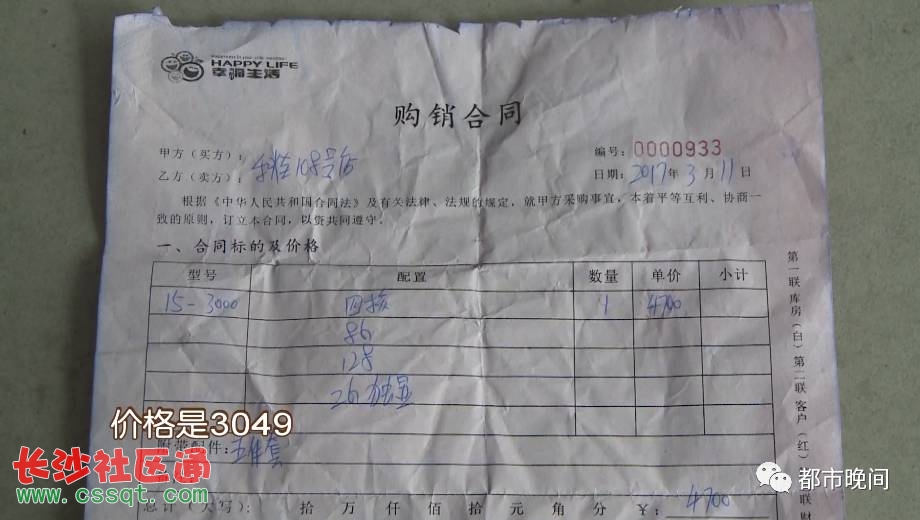 HAPPY LIFE
幸福生活
购销合同
甲方（买方）：
编号：0000933
乙方（卖方）：108号店
日期：2017年3月11日
根据《中华人民共和国合同法》及有关法律、法规的规定，就甲方采购事宜，本着平等互利、协商一
致的原则，订立本合同，以资共同遵守。
一、合同标的及价格
型号 配置 数量 单价 小计
15-3000 四核 1 4700
8G
128
2G独显
价格是3049
附带配件：五件套
总计（大写）： 拾 万 仟 佰 拾 元 角 分 ￥：4700
第一联库房（白）第二联客户（红）
联财
长沙社区通
www.cssqt.com
都市晚间